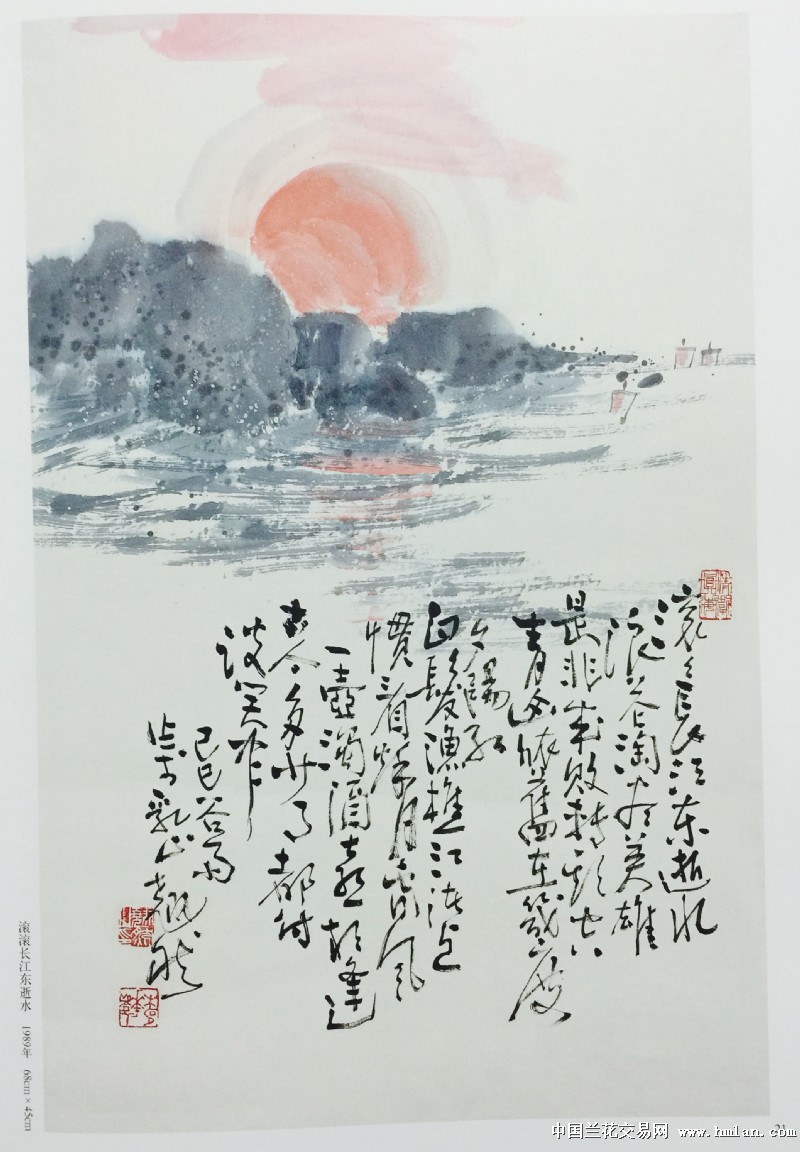 滚々長江东逝水
浪花淘尽英雄
是非成败轉头空
青山依舊在幾度
夕陽红
白髮漁樵江渚上
惯看秋月春风
一壺濁酒喜相逢
古今多少事都付
谈笑中
己巳谷雨
乳山
滚滚长江东逝水 1989年 68cm×45cm
21
中国兰花交易网 www.hmlan.com